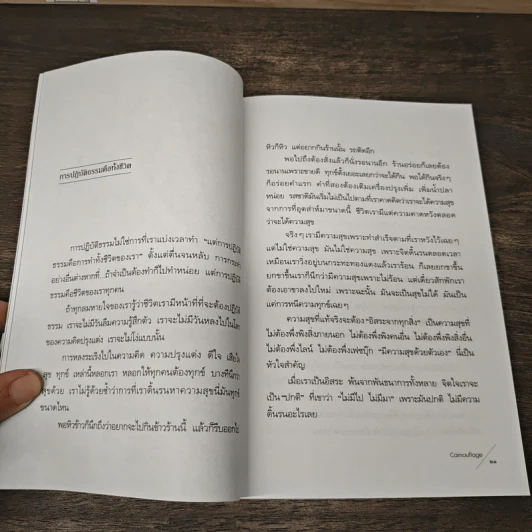 การปฏิบัติธรรมคือทั้งชีวิต
การปฏิบัติธรรมไม่ใช่การที่เราแบ่งเวลาทำ "แต่การปฏิบัติ
ธรรมคือการทำทั้งชีวิตของเรา" ตั้งแต่ตื่นจนหลับ การกระทำ
อย่างอื่นต่างหากที่...ถ้าจำเป็นต้องทำก็ไปทำหน่อย แต่การปฏิบัติ
ธรรมคือชีวิตของเราทุกคน
ถ้าทุกลมหายใจของเรารู้ว่าชีวิตเรามีหน้าที่ที่จะต้องปฏิบัติ
ธรรม เราจะไม่มีวันลืมความรู้สึกตัว เราจะไม่มีวันหลงไปในโลก
ของความคิดปรุงแต่ง เราจะไม่โง่แบบนั้น
การหลงระเริงไปในความคิด ความปรุงแต่ง ดีใจ เสียใจ
สุข ทุกข์ เหล่านี้หลอกเรา หลอกให้ทุกคนต้องทุกข์ บางทีนึกว่า
สุขด้วย เราไม่รู้ด้วยซ้ำว่าการที่เราดิ้นรนหาความสุขนี่มันทุกข์
ขนาดไหน
พอหิวข้าวก็นึกถึงว่าอยากจะไปกินข้าวร้านนี้ แล้วก็รีบออกไป
หิวก็หิว แต่อยากกินร้านนั้น รถติดอีก
พอไปถึงต้องสั่งแล้วก็นั่งรอนานอีก ร้านอร่อยก็เลยต้อง
รอนานเพราะขายดี ทุกข์ตั้งเยอะเลยกว่าจะได้กิน พอได้กินจริงๆ
ก็อร่อยคำแรก คำที่สองต้องเติมเครื่องปรุงเพิ่ม เพิ่มน้ำปลา
หน่อย รสชาติมันเริ่มไม่เป็นไปตามที่เราคาดคิดว่าเราจะได้ความสุข
จากการที่อุตส่าห์มาขนาดนี้ ชีวิตเรามีแต่ความคาดหวังตลอด
ว่าจะได้ความสุข
จริงๆ เรามีความสุขเพราะทำสำเร็จตามที่เราหวังไว้เฉยๆ
แต่ไม่ใช่ความสุข มันไม่ใช่ความสุข เพราะจิตดิ้นรนตลอดเวลา
เหมือนเราวิ่งอยู่บนกระทะทองแดงแล้วเราร้อน ก็เลยยกขาขึ้น
ยกขาขึ้นเราก็นึกว่ามีความสุขเพราะไม่ร้อน แต่เดี๋ยวสักพักเรา
ต้องเอาขาลงไปใหม่ เพราะฉะนั้น มันจะเป็นสุขไม่ได้ มันเป็น
แค่การหนีความทุกข์เฉยๆ
ความสุขที่แท้จริงจะต้อง "อิสระจากทุกสิ่ง" เป็นความสุขที่
ไม่ต้องพึ่งพิงสิ่งภายนอก ไม่ต้องพึ่งพิงคนอื่น ไม่ต้องพึ่งพิงสิ่งอื่น
ไม่ต้องพึ่งไลน์ ไม่ต้องพึ่งเฟซบุ๊ก "มีความสุขด้วยตัวเอง" นี่เป็น
หัวใจสำคัญ
เมื่อเราเป็นอิสระ พ้นจากพันธนาการทั้งหลาย จิตใจเราจะ
เป็น "ปกติ" ที่เขาว่า "ไม่มีไป ไม่มีมา" เพราะมันปกติ ไม่มีความ
ดิ้นรนอะไรเลย
Camouflage